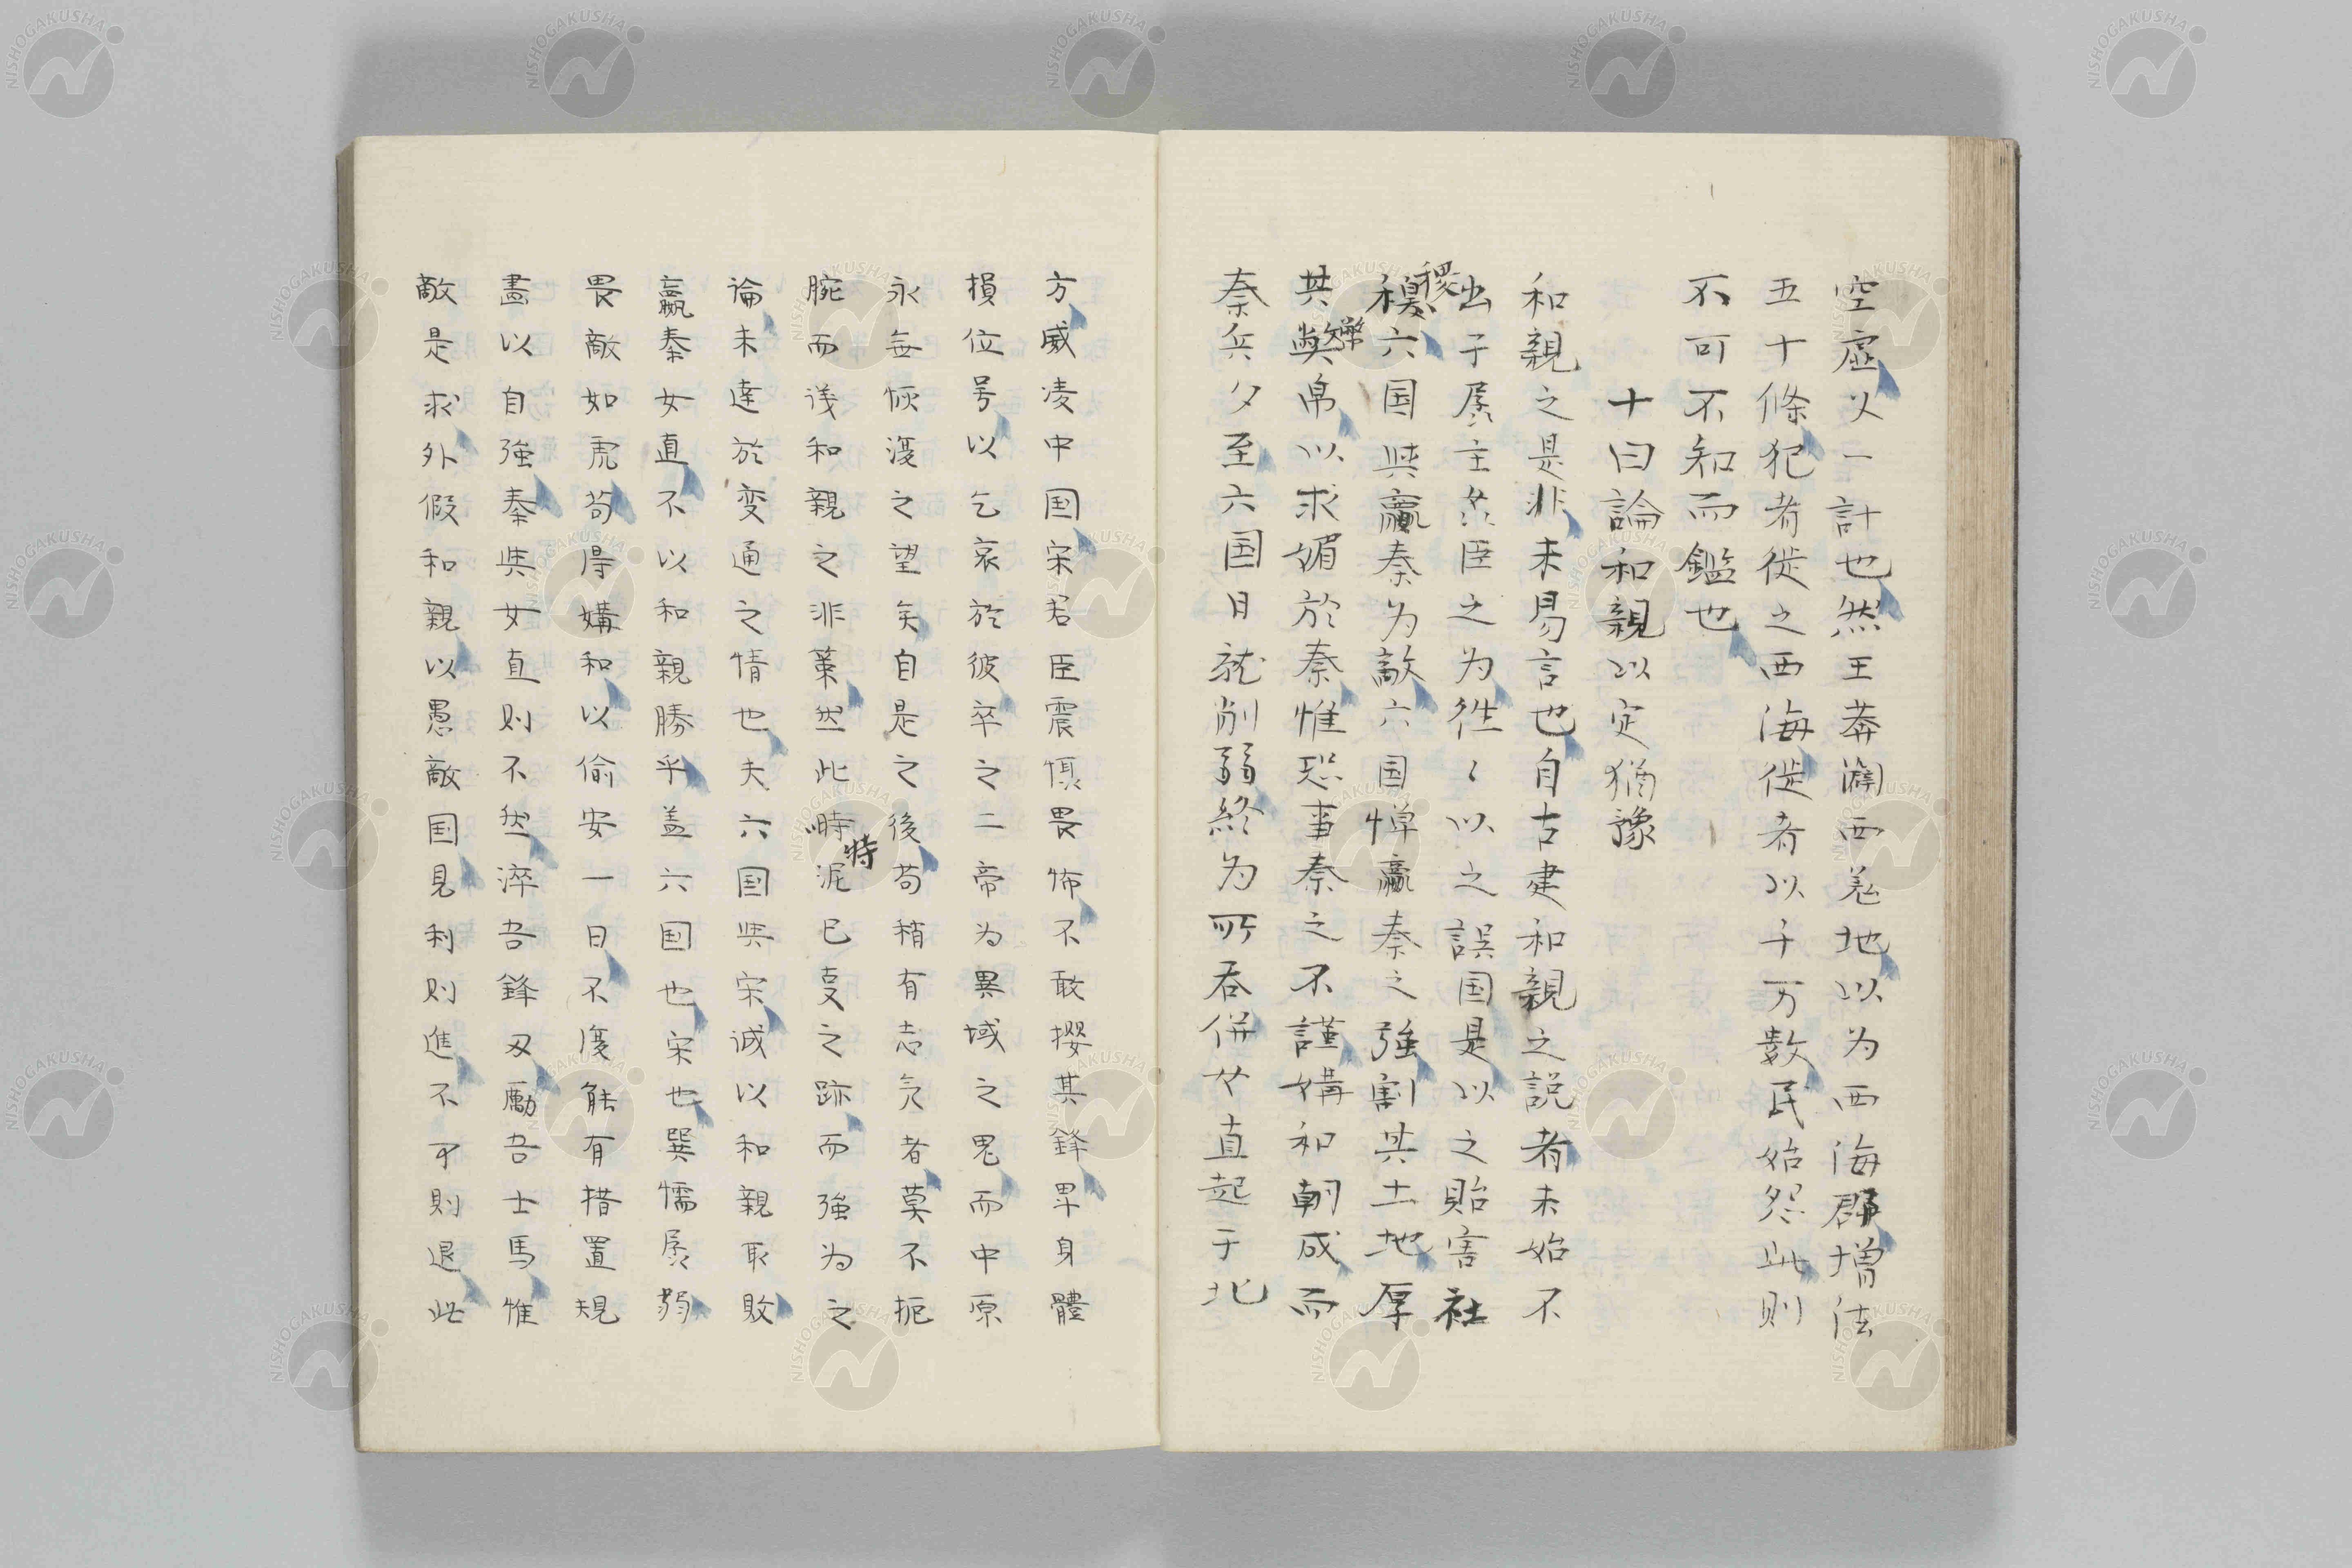 空虛以一計也然王莽開西羗地以为西海郡増法
五十條犯者徙之西海徙者以千万數民始怨此則
不可不知而鑑也
十曰論和親以定猶豫
和親之是非未易言也自古建和親之説者未始不
出于孱主其臣之为徃〻以之誤国是以之貽害社
稷六国與嬴秦为敵六国惮嬴秦之強割其土地厚
其幣帛以求媚於秦惟恐事秦之不謹媾和朝成而
秦兵夕至六国日就削弱終为所吞併女直起于北
方威凌中国宋君臣震慎畏怖不敢撄其鋒卑身體
損位号以乞哀於彼卒之二帝为異域之鬼而中原
永無恢復之望矣自是之後苟稍有志气者莫不扼
腕而議和親之非策然此特泥已叓之跡而強为之
論未達於变通之情也夫六国與宋誠以和親取敗
嬴秦女直不以和親勝乎盖六国也宋也巽懦孱弱
畏敵如虎苟得媾和以偷安一日不復能有措置規
畫以自強秦與女直則不然淬吾鋒刃勵吾士馬惟
敵是求外假和親以愚敵国見利則進不可則退此